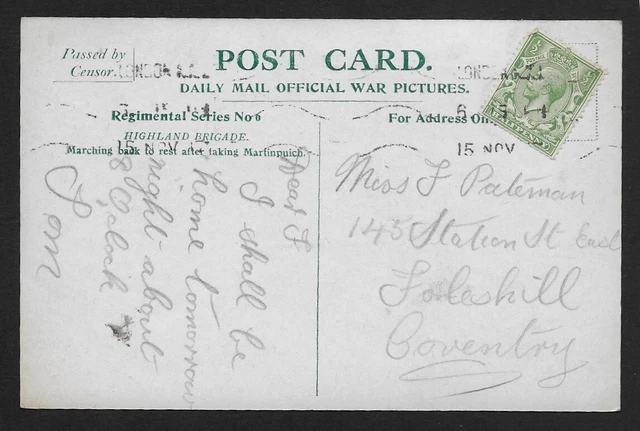 Passed by
Censor.
POST CARD.
DAILY MAIL OFFICIAL WAR PICTURES.
Regimental Series No 6
HIGHLAND BRIGADE.
Marching back to rest after taking Martinpuich.
For Address Only
LONDON
15 NOV
LONDON
15 NOV
Dear F
I shall be
home tomorrow
night about
8 O'clock
Tom
Miss F Pateman
145 Station St East
Foleshill
Coventry